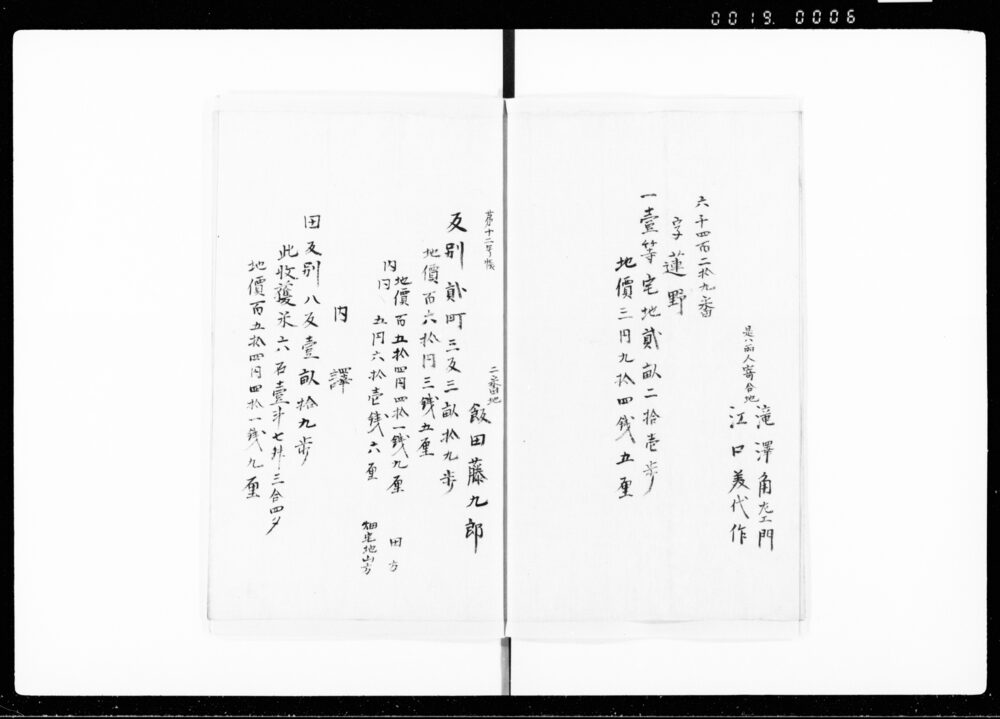 0019. 0006
滝澤角左エ門
是ハ両人寄合地
江口美代作
六千四百二拾九番
字蓮野
一壹等宅地貳畝二拾壱歩
地價三円九拾四銭五厘
第十二号帳
二二番地
飯田藤九郎
反別貳町三反三畝拾九歩
地價百六拾円三銭五厘
内 地價百五拾四円四拾一銭九厘 田方
内円 五円六拾壱銭六厘 畑宅地山方
内譯
田反別八反壹畝拾九歩
此收穫米六石壹斗七舛三合四夕
地價百五拾四円四拾一銭九厘